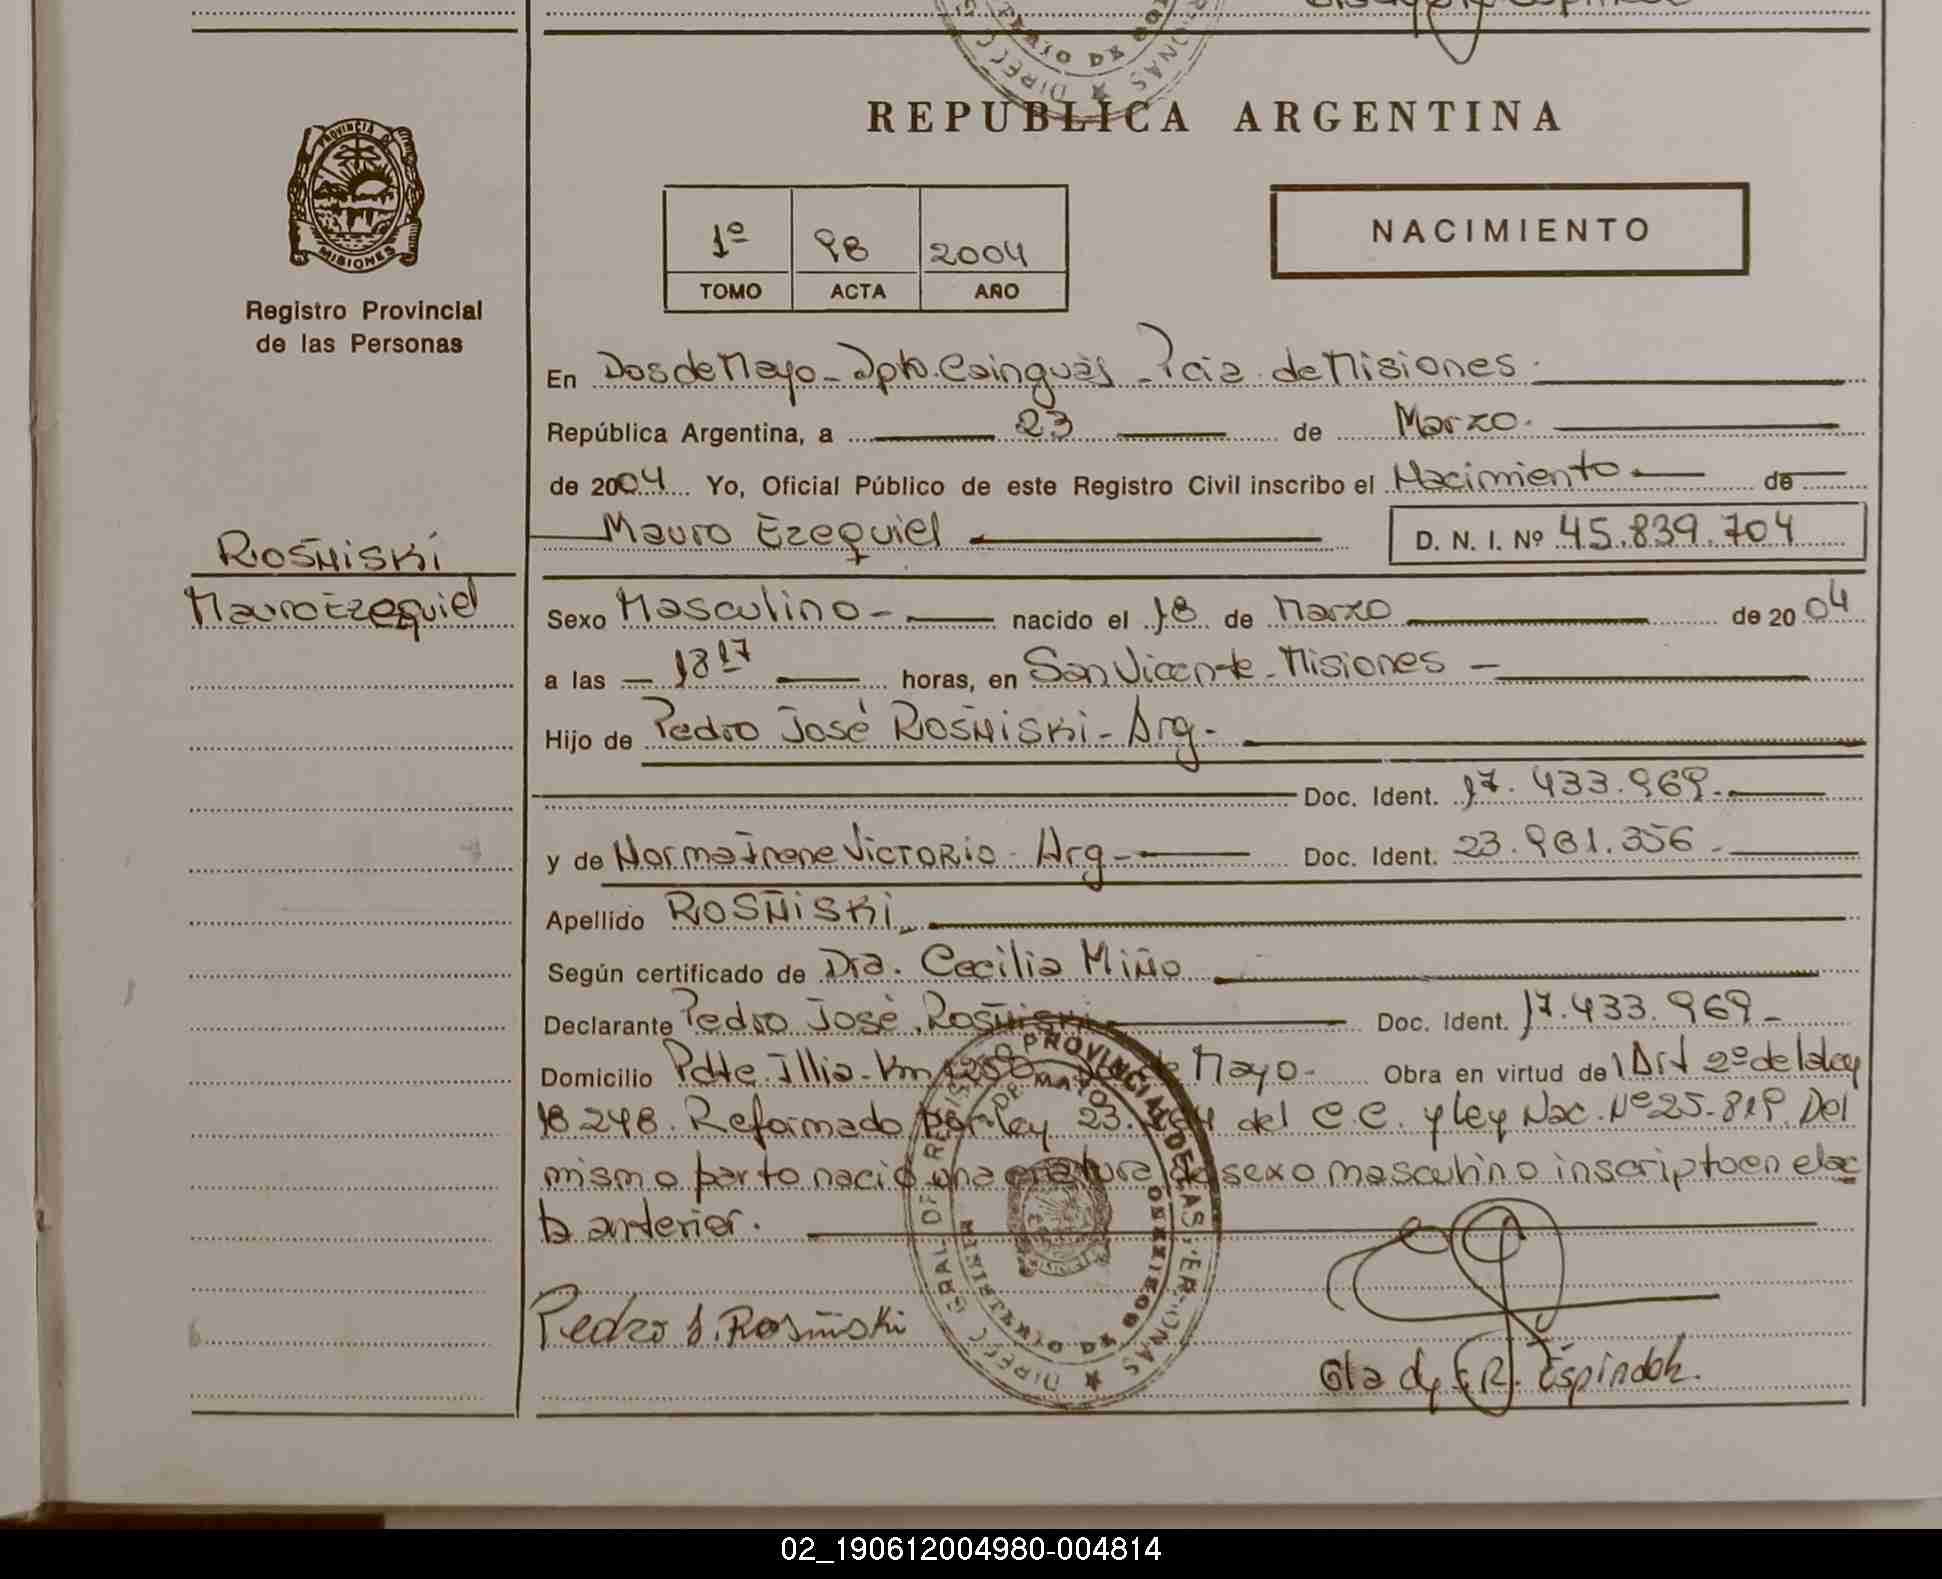 REPUBLICA ARGENTINA
PROVINCIA DE
MISIONES
Registro Provincial
de las Personas
1º 98 2004
TOMO ACTA AÑO
NACIMIENTO
En Dos de Mayo - Dpto. Cainguás - Pcia. de Misiones.
República Argentina, a 23 de Marzo.
de 2004 Yo, Oficial Público de este Registro Civil inscribo el Nacimiento de
Mauro Ezequiel D. N. I. Nº 45.839.704
ROSÑISKI
Mauro Ezequiel
Sexo Masculino - nacido el 18 de Marzo de 2004
a las 18 17 horas, en San Vicente - Misiones
Hijo de Pedro José ROSÑISKI - Arg.
Doc. Ident. 17.433.969.
y de Norma Irene VICTORIO - Arg - Doc. Ident. 23.981.356
Apellido ROSÑISKI
Según certificado de Dra. Cecilia Miño
Declarante Pedro José Rosñiski Doc. Ident. 17.433.969
Domicilio Pdte. Illia - Km 258 Mayo - Obra en virtud de Art 2º de la ley
18.248. Reformado por ley 23. del C.C. y ley Nac. Nº 25.819. Del
mismo parto nació una criatura de sexo masculino inscripto en el ac
ta anterior.
Pedro J. Rosñiski
Glady R. Espindola.
02_190612004980-004814